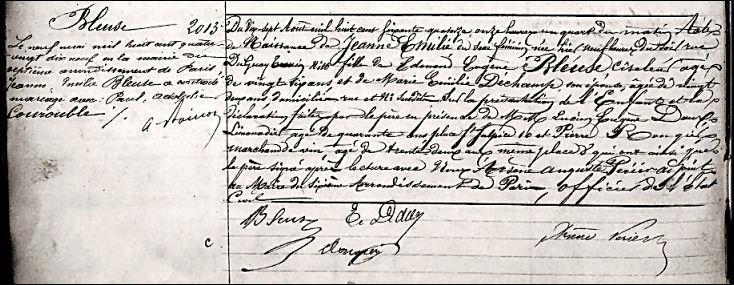 Bleuse 2013
Le neuf mai mil huit cent quatre
vingt dix neuf en la mairie du
septième arrondissement de Paris
Jeanne Emilie Bleuse a contracté
mariage avec Paul, Adolphe
Courouble ./.
Du dix-sept Août mil huit cent soixante quatorze onze heures un quart du matin Acte
de Naissance de Jeanne Emilie du sexe féminin née hier neuf heures du soir rue
fille de Edouard Eugène Bleuse Ciseleur agé
de vingt six ans, et de Marie Emilie Dechamps son épouse, agée de vingt
ans, domiciliés rue et No susdits Sur la présentation de l'Enfant et la
déclaration faite par le père en présence de
Limonadier agé de quarante ans place St Sulpice et Pierre Rouquié
marchand de vin agé de trente deux ans même place qui ont ainsi que
le père signé après lecture avec Nous Arsène Auguste Périer adjoint
au Maire du Sixième Arrondissement de Paris, officier de l'état
Civil
Bleuse
Rouquié
Arsène Périer
c